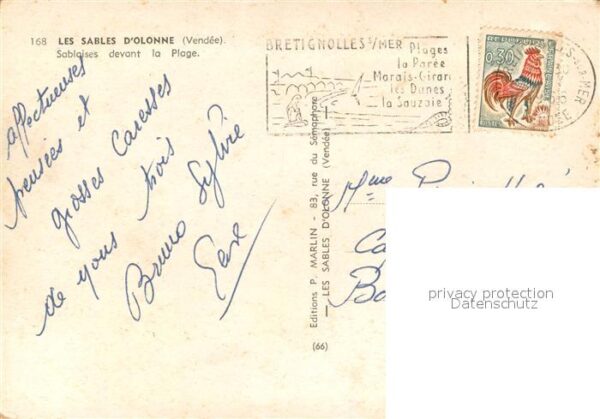 168 LES SABLES D'OLONNE (Vendée).
Sablaises devant la Plage.
affectueuses
pensées et
grosses caresses
de vous trois
Bruno Sylvie
BRETIGNOLLES S/MER Plages
la Parée
Marais-Girard
les Dunes
la Sauzaie
0,30
Editions P. MARLIN - 83, rue du Sémaphore
— LES SABLES D'OLONNE (Vendée) —
(66)
Mme
privacy protection
Datenschutz